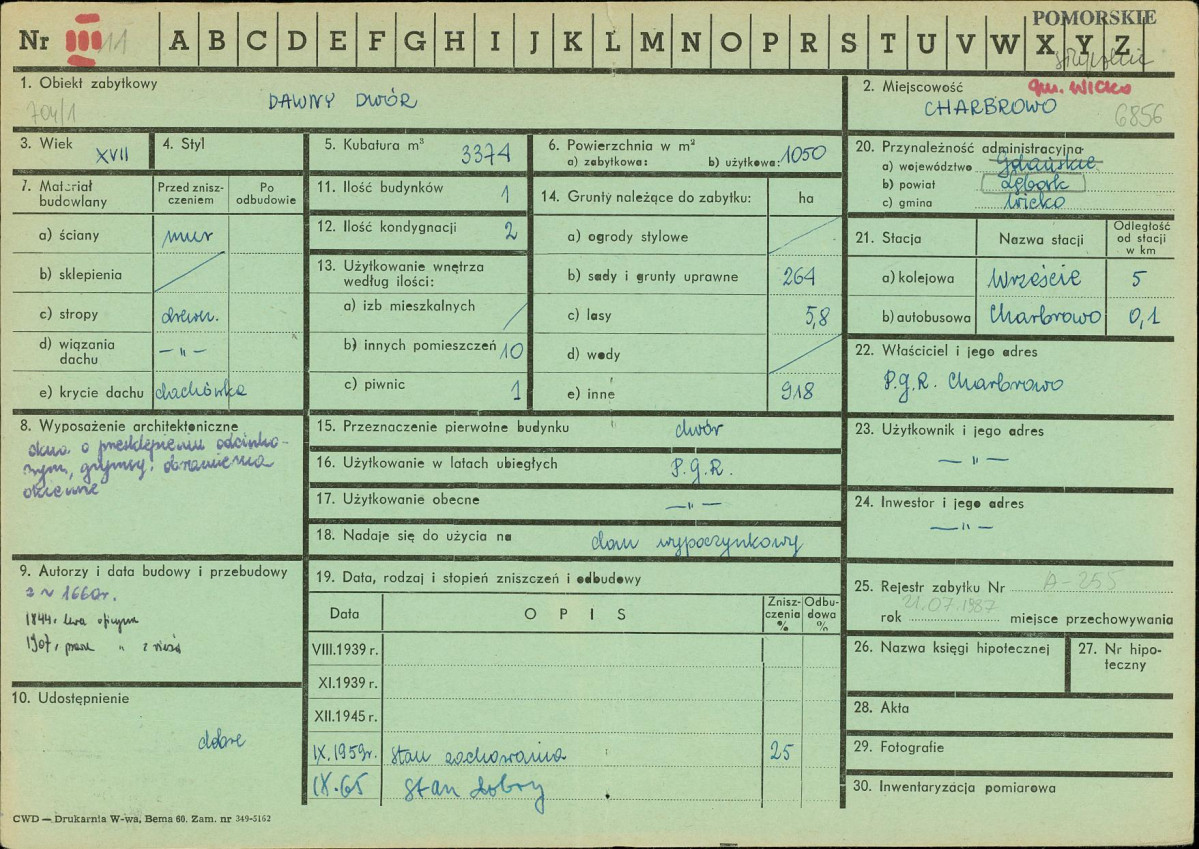 POMORSKIE
Nr III 11 A B C D E F G H I J K L M N O P R S T U V W X Y Z
1. Obiekt zabytkowy
DAWNY DWÓR
704/1
2. Miejscowość gm. WICKO
CHARBROWO
6856
3. Wiek XVII
4. Styl
5. Kubatura m³ 3374
6. Powierzchnia w m²
a) zabytkowa: b) użytkowa: 1050
20. Przynależność administracyjna
a) województwo Gdańskie
b) powiat Lębork
c) gmina Wicko
7. Materiał budowlany
Przed zniszczeniem
Po odbudowie
a) ściany mur
b) sklepienia
c) stropy drewn.
d) wiązania dachu — " —
e) krycie dachu dachówka
11. Ilość budynków 1
12. Ilość kondygnacji 2
13. Użytkowanie wnętrza według ilości:
a) izb mieszkalnych
b) innych pomieszczeń 10
c) piwnic 1
14. Grunty należące do zabytku: ha
a) ogrody stylowe
b) sady i grunty uprawne 264
c) lasy 5,8
d) wody
e) inne 918
21. Stacja
Nazwa stacji
Odległość od stacji w km
a) kolejowa Wrzeście 5
b) autobusowa Charbrowo 0,1
22. Właściciel i jego adres
P.G.R. Charbrowo
23. Użytkownik i jego adres
— " —
24. Inwestor i jego adres
— " —
8. Wyposażenie architektoniczne
okna o przesklepieniu odcinko-
wym, gzymsy i obramienia
okienne
15. Przeznaczenie pierwotne budynku dwór
16. Użytkowanie w latach ubiegłych P.G.R.
17. Użytkowanie obecne — " —
18. Nadaje się do użycia na dom wypoczynkowy
9. Autorzy i data budowy i przebudowy
z ~ 1660r.
1844. lewa oficyna
1907, prawa "
10. Udostępnienie
dobre
19. Data, rodzaj i stopień zniszczeń i odbudowy
Data
OPIS
Zniszczenia %
Odbudowa %
VIII.1939 r.
XI.1939 r.
XII.1945 r.
IX.1959r. stan zachowania 25
IX.65 stan dobry
25. Rejestr zabytku Nr A-255
rok 21.07.1987 miejsce przechowywania
26. Nazwa księgi hipotecznej
27. Nr hipoteczny
28. Akta
29. Fotografie
30. Inwentaryzacja pomiarowa
CWD — Drukarnia W-wa, Bema 60. Zam. nr 349-5162